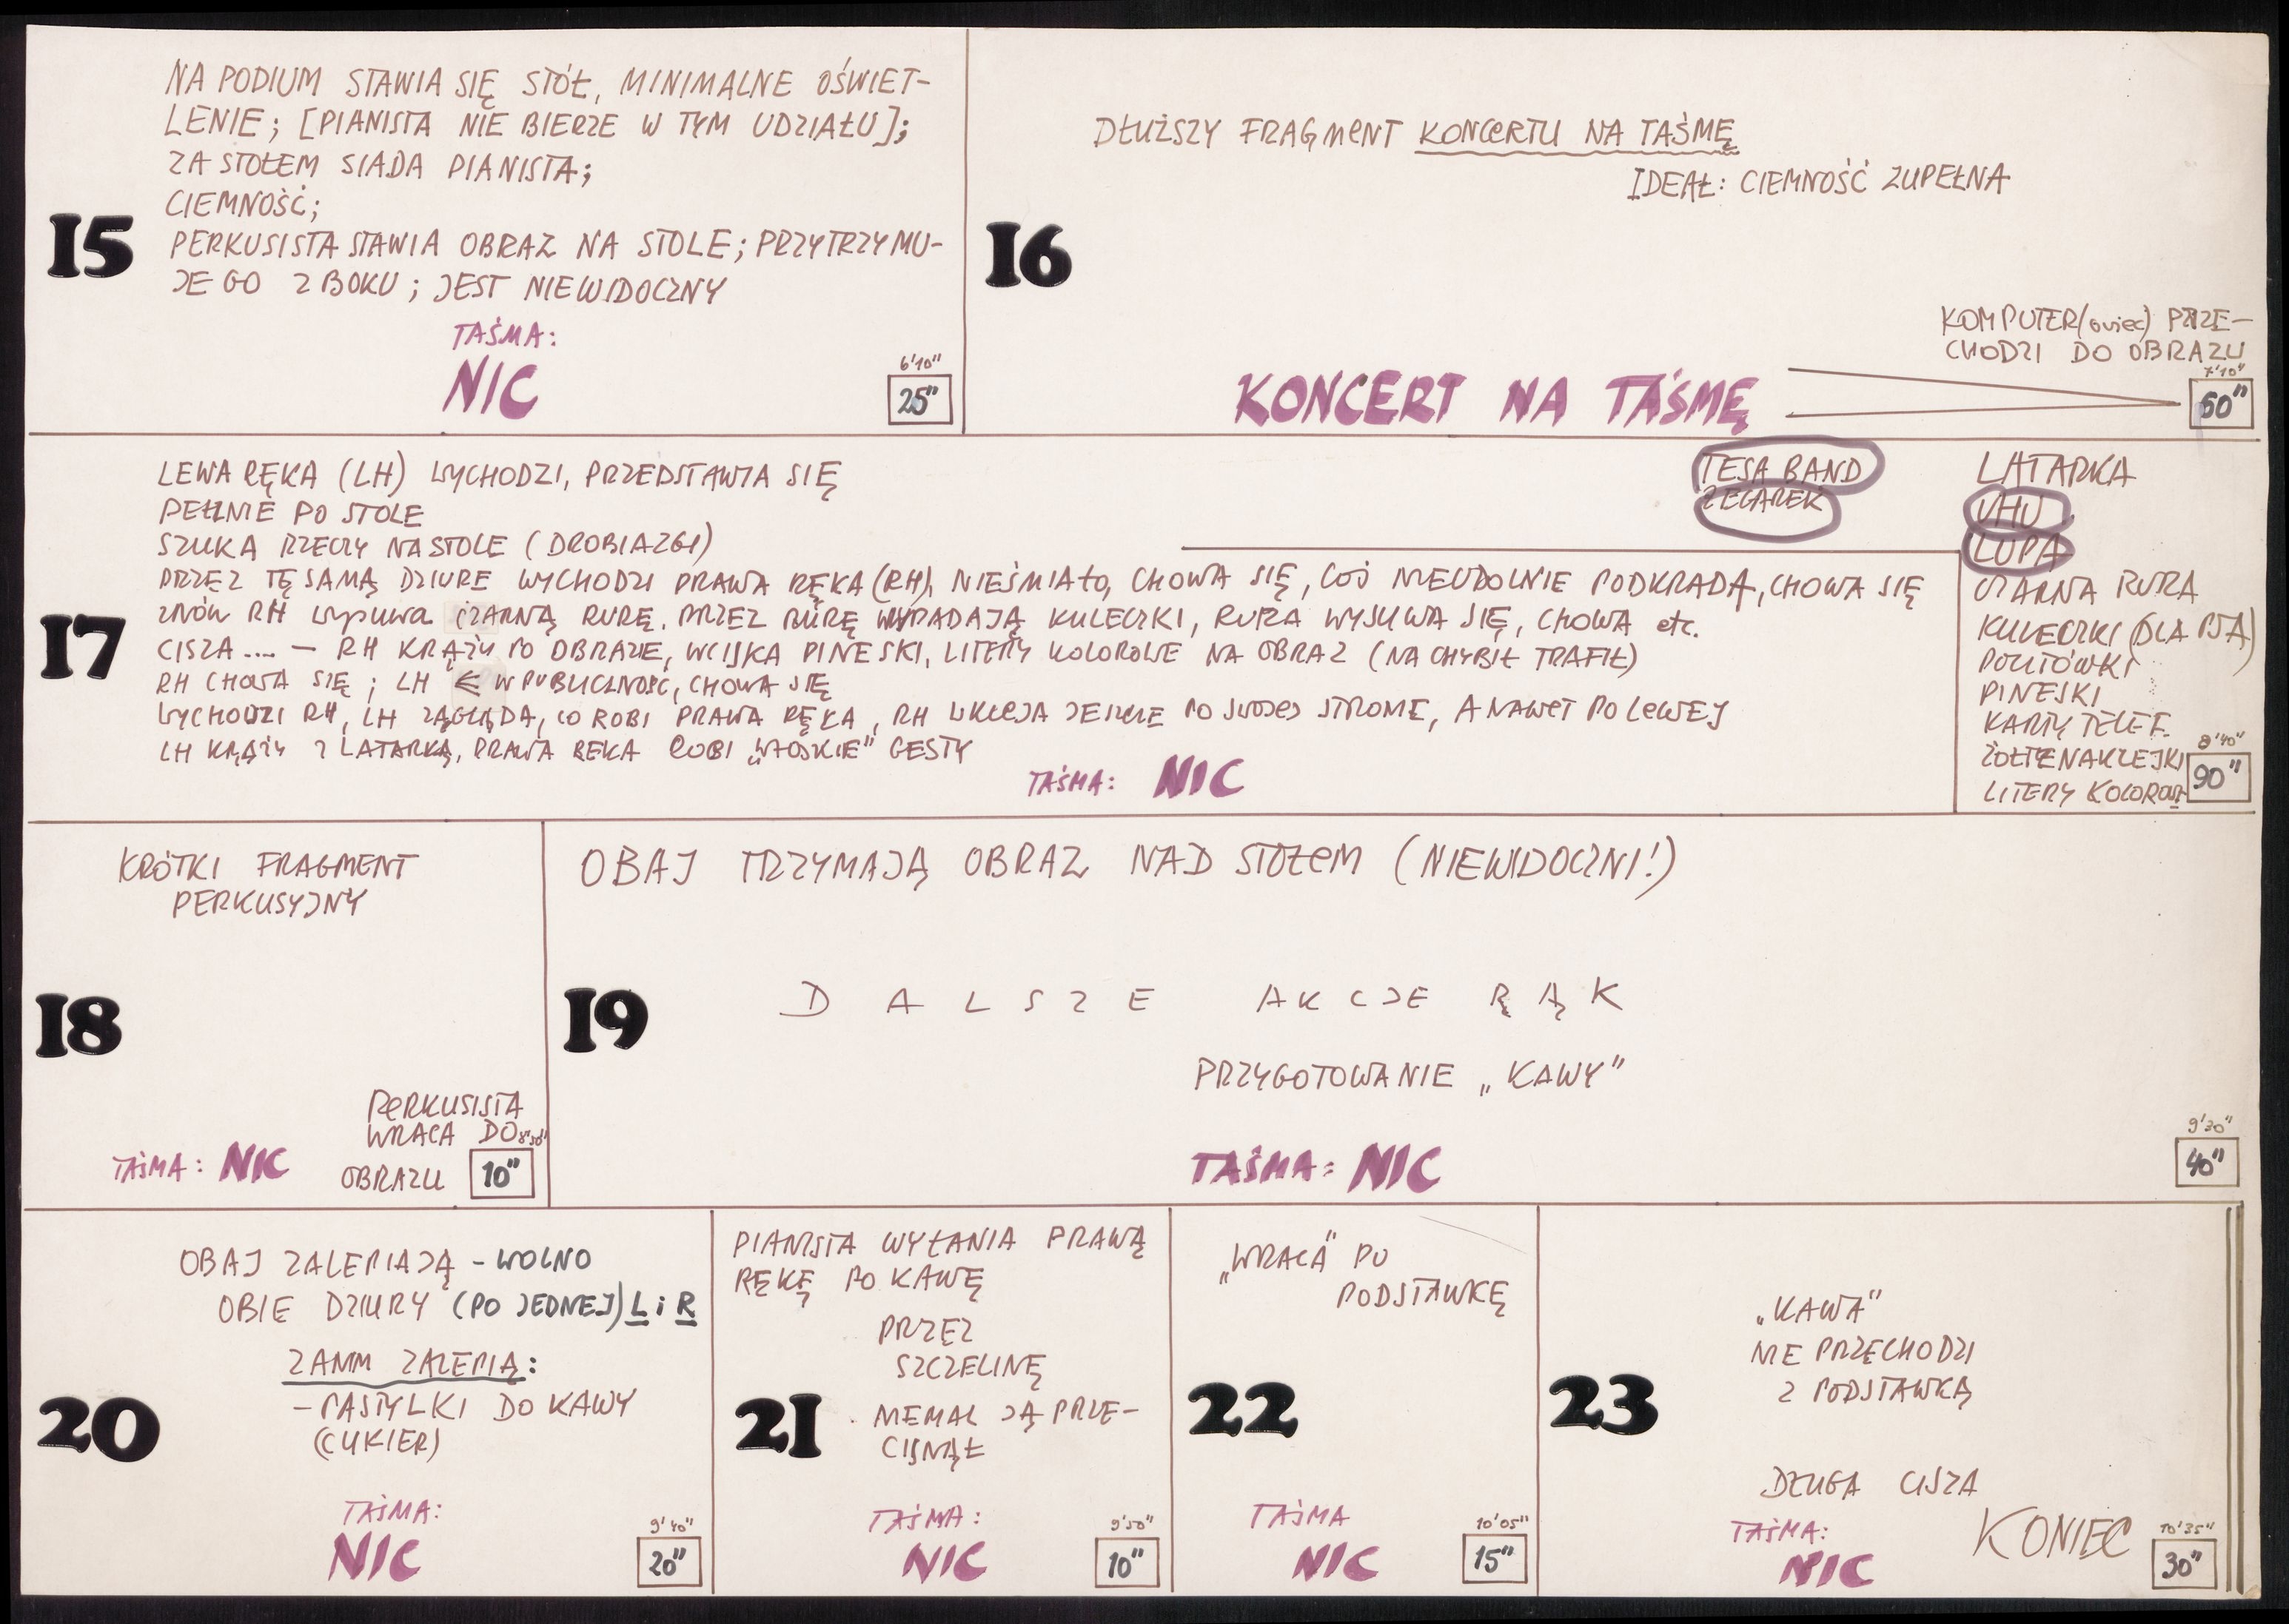 NA PODIUM STAWIA SIĘ STÓŁ, MINIMALNE OŚWIET-
LENIE; [PIANISTA NIE BIERZE W TYM UDZIAŁU];
ZA STOŁEM SIADA PIANISTA;
CIEMNOŚĆ;
PERKUSISTA STAWIA OBRAZ NA STOLE; PRZYTRZYMU-
JE GO Z BOKU; JEST NIEWIDOCZNY
15
TAŚMA:
NIC
6'10"
25"
DŁUŻSZY FRAGMENT KONCERTU NA TAŚMĘ
IDEAŁ: CIEMNOŚĆ ZUPEŁNA
16
KOMPUTER(owiec) PRZE-
CHODZI DO OBRAZU
KONCERT NA TAŚMĘ
7'10"
60"
LEWA RĘKA (LH) WYCHODZI, PRZEDSTAWIA SIĘ
PEŁZNIE PO STOLE
SZUKA RZECZY NA STOLE (DROBIAZGI)
PRZEZ TĘ SAMĄ DZIURE WYCHODZI PRAWA RĘKA (RH), NIEŚMIAŁO, CHOWA SIĘ, COŚ NIEUDOLNIE PODKRADA, CHOWA SIĘ
ZNÓW RH wysuwa CZARNĄ RURĘ. PRZEZ RURĘ WYPADAJĄ KULECZKI, RURA WYSUWA SIĘ, CHOWA etc.
CISZA .... — RH KRĄŻY PO OBRAZIE, WCISKA PINESKI, LITERY KOLOROWE NA OBRAZ (NA CHYBIŁ TRAFIŁ)
RH CHOWA SIĘ; LH W PUBLICZNOŚĆ, CHOWA SIĘ
WYCHODZI RH, LH ZAGLĄDA, CO ROBI PRAWA RĘKA, RH WKLEJA JESZCZE PO SWOJEJ STRONIE, A NAWET PO LEWEJ
LH KRĄŻY Z LATARKĄ, PRAWA RĘKA ROBI „WŁOSKIE" GESTY
17
TAŚMA: NIC
TESA BAND
ZEGAREK
LATARKA
UHU
LUPA
CZARNA RURA
KULECZKI (DLA PSA)
POCZTÓWKI
PINESKI
KARTY TELEF.
ŻÓŁTE NAKLEJKI
LITERY KOLOROW
8'40"
90"
KRÓTKI FRAGMENT
PERKUSYJNY
18
PERKUSISTA
WRACA DO
OBRAZU
TAŚMA: NIC
8'50"
10"
OBAJ TRZYMAJĄ OBRAZ NAD STOŁEM (NIEWIDOCZNI!)
19
DALSZE AKCJE RĄK
PRZYGOTOWANIE „KAWY"
TAŚMA: NIC
9'30"
40"
OBAJ ZALEPIAJĄ - WOLNO
OBIE DZIURY (PO JEDNEJ) L i R
ZANIM ZALEPIĄ:
- PASTYLKI DO KAWY
(CUKIER)
20
TAŚMA:
NIC
9'40"
20"
PIANISTA WYŁANIA PRAWĄ
RĘKĘ PO KAWĘ
PRZEZ
SZCZELINĘ
NIEMAL JĄ PRZE-
CISNĄŁ
21
TAŚMA:
NIC
9'50"
10"
„WRACA" PO
PODSTAWKĘ
22
TAŚMA
NIC
10'05"
15"
„KAWA"
NIE PRZECHODZI
Z PODSTAWKĄ
23
DŁUGA CISZA
KONIEC
TAŚMA:
NIC
10'35"
30"